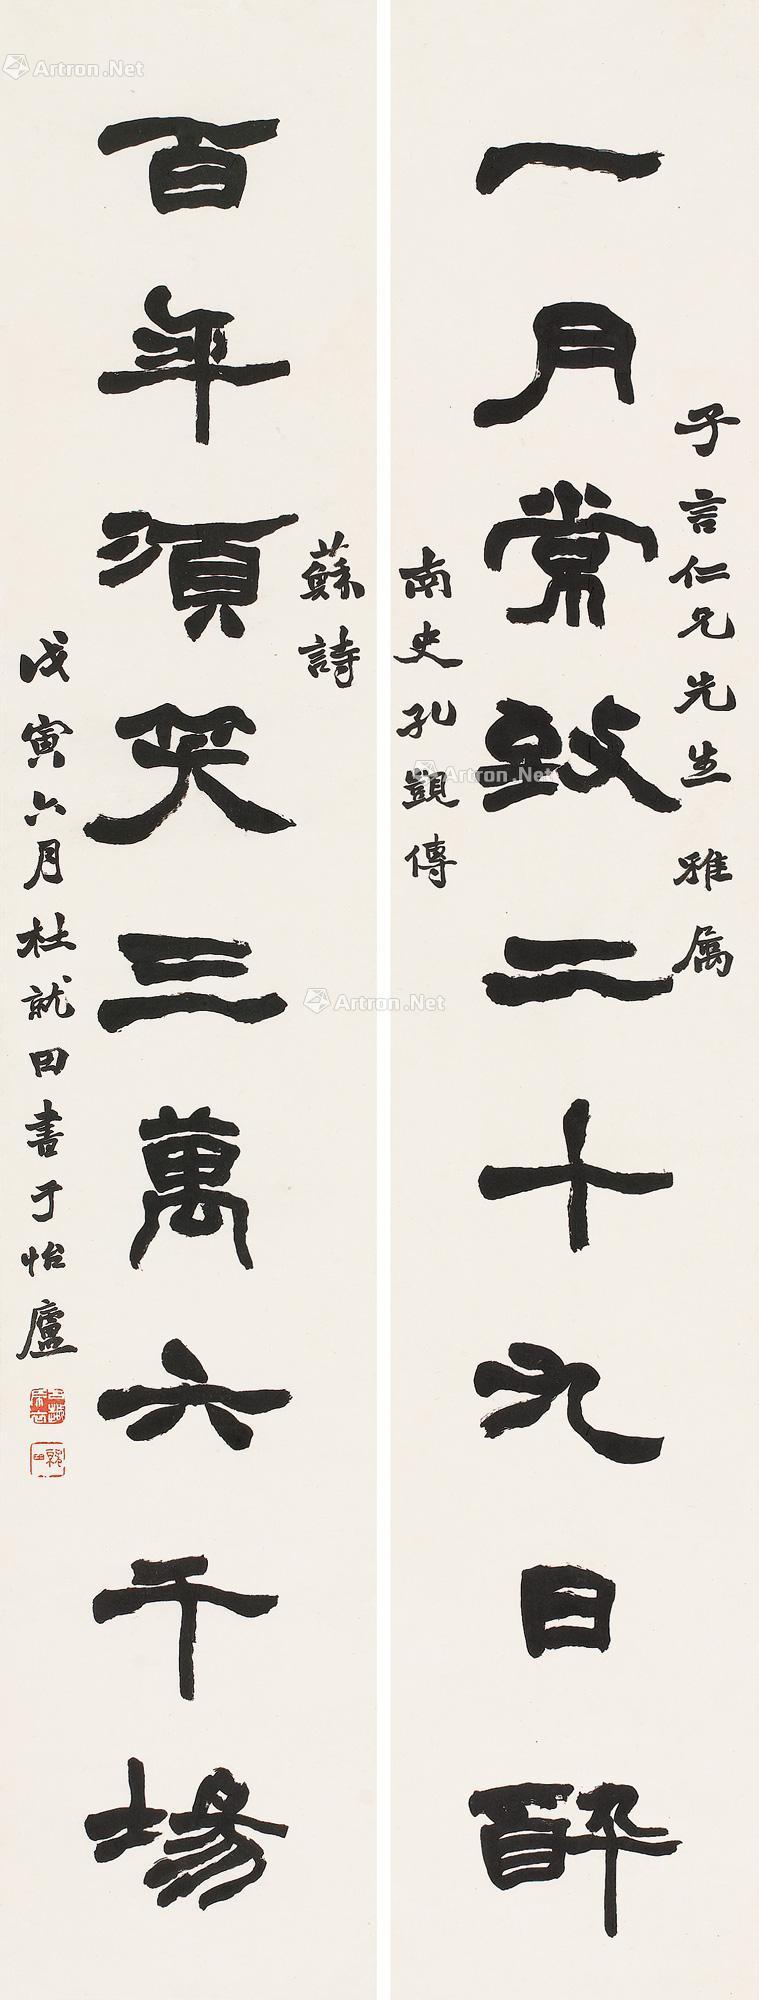 子言仁兄先生雅属
一月常致二十九日醉
南史孔覬傳
蘇詩
百年須笑三萬六千場
戊寅六月杜就田書于怡廬
就田
Artron.Net
Artron.Net
Artron.Net